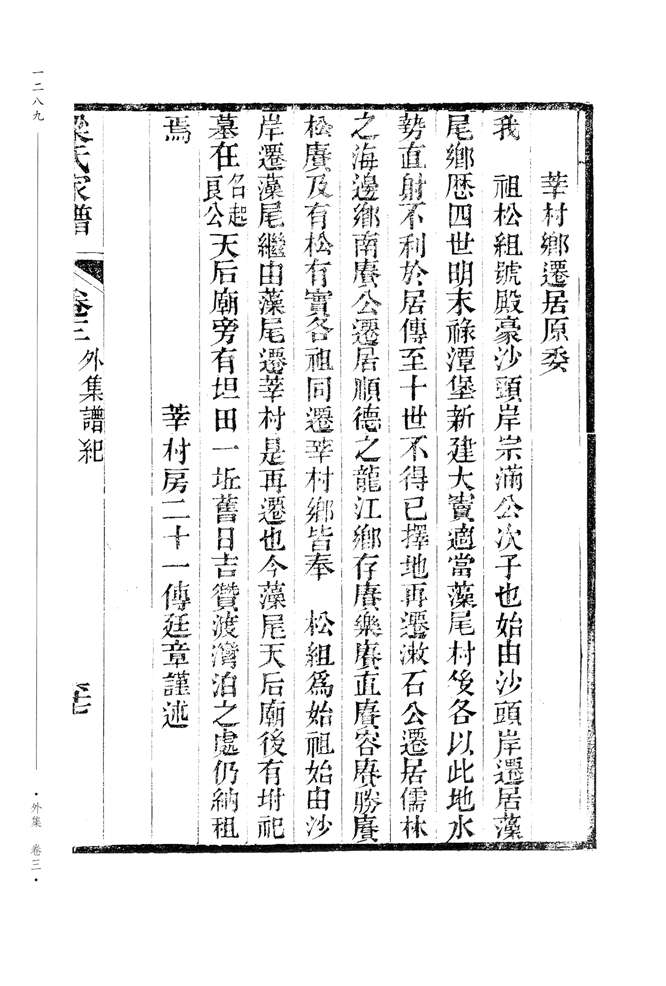 莘村鄉遷居原委
我　祖松組號殿豪沙頭岸宗滿公次子也始由沙頭岸遷居藻
尾鄉歷四世明末祿潭堡新建大竇適當藻尾村後各以此地水
勢直射不利於居傳至十世不得已擇地再遷漱石公遷居儒林
之海邊鄉南賡公遷居順德之龍江鄉存賡樂賡直賡容賡勝賡
松賡及有松有實各祖同遷莘村鄉皆奉　松組爲始祖始由沙
岸遷藻尾繼由藻尾遷莘村是再遷也今藻尾天后廟後有坿祀
墓在名起良公天后廟旁有坦田一坵舊日吉贊渡灣泊之處仍納租
焉
莘村房二十一傳廷章謹述
梁氏家譜　卷三　外集譜紀
一二八九
·外集　卷三·